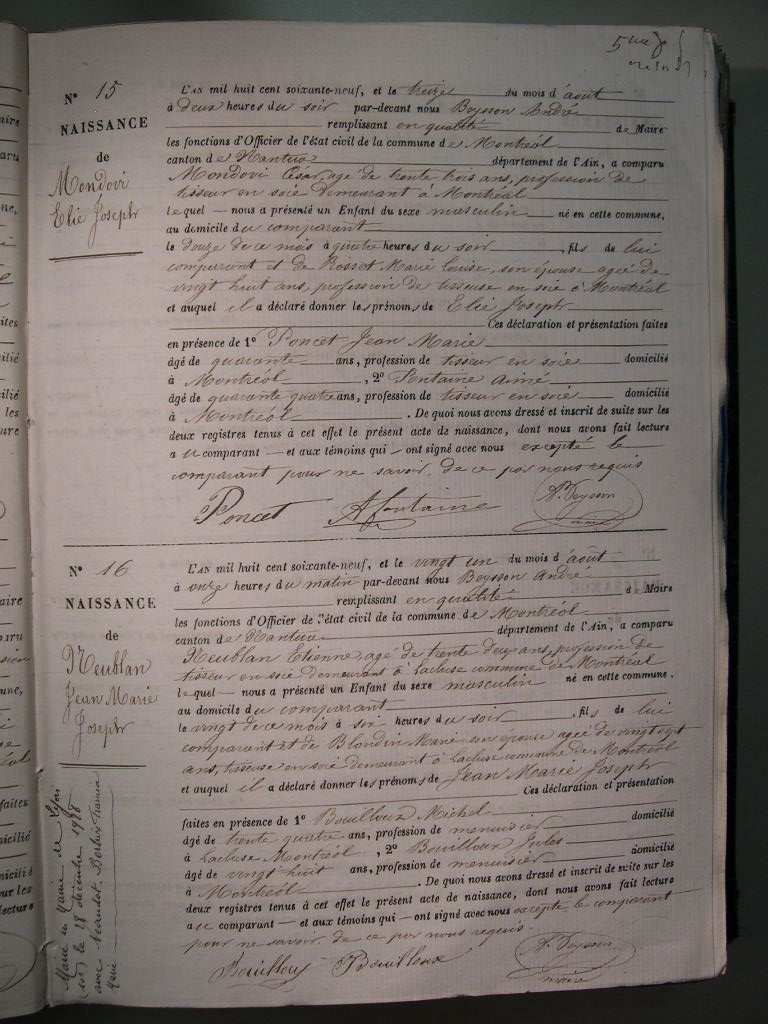 N° 15
NAISSANCE
de
Mondovi
Elie Joseph
L'AN mil huit cent soixante-neuf, et le treize du mois d'août
à deux heures du soir par-devant nous Beysson André
remplissant en qualité de Maire
les fonctions d'Officier de l'état civil de la commune de Montréal
canton de Nantua département de l'Ain, a comparu
Mondovi César, agé de trente trois ans, profession de
tisseur en soie demeurant à Montréal
lequel — nous a présenté un Enfant du sexe masculin né en cette commune,
au domicile du comparant
le douze de ce mois à quatre heures du soir, fils de lui
comparant et de Rosset Marie Louise, son épouse agée de
vingt huit ans, profession de tisseuse en soie à Montréal
et auquel il a déclaré donner les prénoms de Elie Joseph
Ces déclaration et présentation faites
en présence de 1° Poncet Jean Marie
âgé de quarante ans, profession de tisseur en soie domicilié
à Montréal, 2° Fontaine Aimé
âgé de quarante quatre ans, profession de tisseur en soie domicilié
à Montréal. De quoi nous avons dressé et inscrit de suite sur les
deux registres tenus à cet effet le présent acte de naissance, dont nous avons fait lecture
au comparant — et aux témoins qui — ont signé avec nous excepté le
comparant pour ne savoir, de ce par nous requis
Poncet A fontaine A. Beysson
maire
N° 16
NAISSANCE
de
Neublan
Jean Marie
Joseph
L'AN mil huit cent soixante-neuf, et le vingt un du mois d'août
à onze heures du matin par-devant nous Beysson André
remplissant en qualité de Maire
les fonctions d'Officier de l'état civil de la commune de Montréal
canton de Nantua département de l'Ain, a comparu
Neublan Etienne, agé de trente deux ans, profession de
tisseur en soie demeurant à Lacluse commune de Montréal
lequel — nous a présenté un Enfant du sexe masculin né en cette commune,
au domicile du comparant
le vingt de ce mois à six heures du soir, fils de lui
comparant et de Blondin Marie son épouse agée de vingt sept
ans, tisseuse en soie demeurant à Lacluse commune de Montréal
et auquel il a déclaré donner les prénoms de Jean Marie Joseph
Ces déclaration et présentation
faites en présence de 1° Bouilloux Michel domicilié
âgé de trente quatre ans, profession de menuisier
à Lacluse Montréal, 2° Bouilloux Jules domicilié
âgé de vingt huit ans, profession de menuisier
à Montréal. De quoi nous avons dressé et inscrit de suite sur les
deux registres tenus à cet effet le présent acte de naissance, dont nous avons fait lecture
au comparant — et aux témoins qui — ont signé avec nous excepté le comparant
pour ne savoir de ce par nous requis.
Bouilloux Bouilloux A. Beysson
maire
Marié en Mairie de Lyon
le 28 décembre 1918
avec